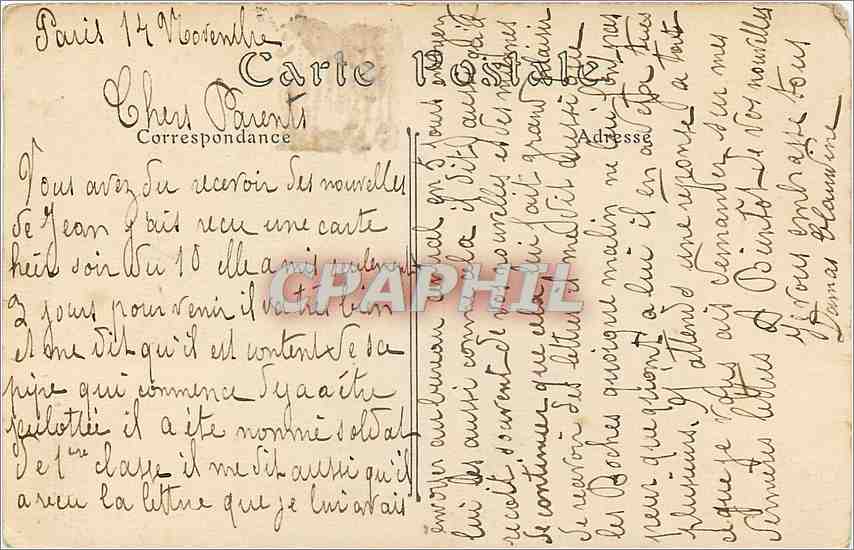 Paris 14 Novembre
Carte Postale
Chers Parents
Correspondance
Adresse
Vous avez du recevoir des nouvelles
de Jean j'ais recu une carte
hier soir du 10 elle a mis seulement
3 jours pour venir il va très bien
et me dit qu'il est content de sa
pipe qui commence deja a être
culottée il a été nommé soldat
de 1ère classe il me dit aussi qu'il
a recu la lettre que je lui avais
envoyer au bureau
lui les aussi comme cela il dit aussi qu'il
recoit souvent de vos nouvelles et de mêmes
de continuer que cela lui fait grand plaisir
de recevoir des lettres il me dit aussi que
les Boches quoique malin ne lui font pas
peur que quiont a lui il en a déja tués
plusieurs. J'attend une reponse a tout
ce que je vous ais demander sur mes
dernieres lettres A Bientot de vos nouvelles
Je vous embrasse tous
Damas Claudine
CPAPHIL